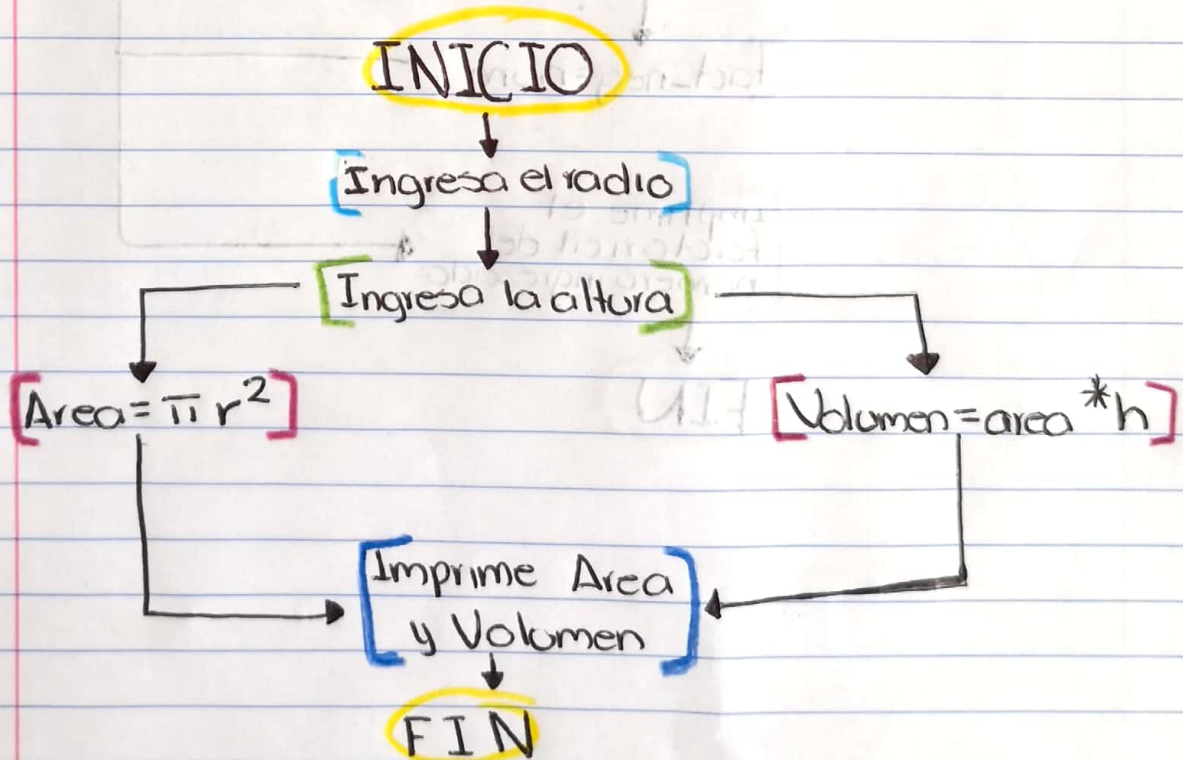 INICIO
Ingresa el radio
Ingresa la altura
Area = π r²
Volumen = area * h
Imprime Area
y Volumen
FIN